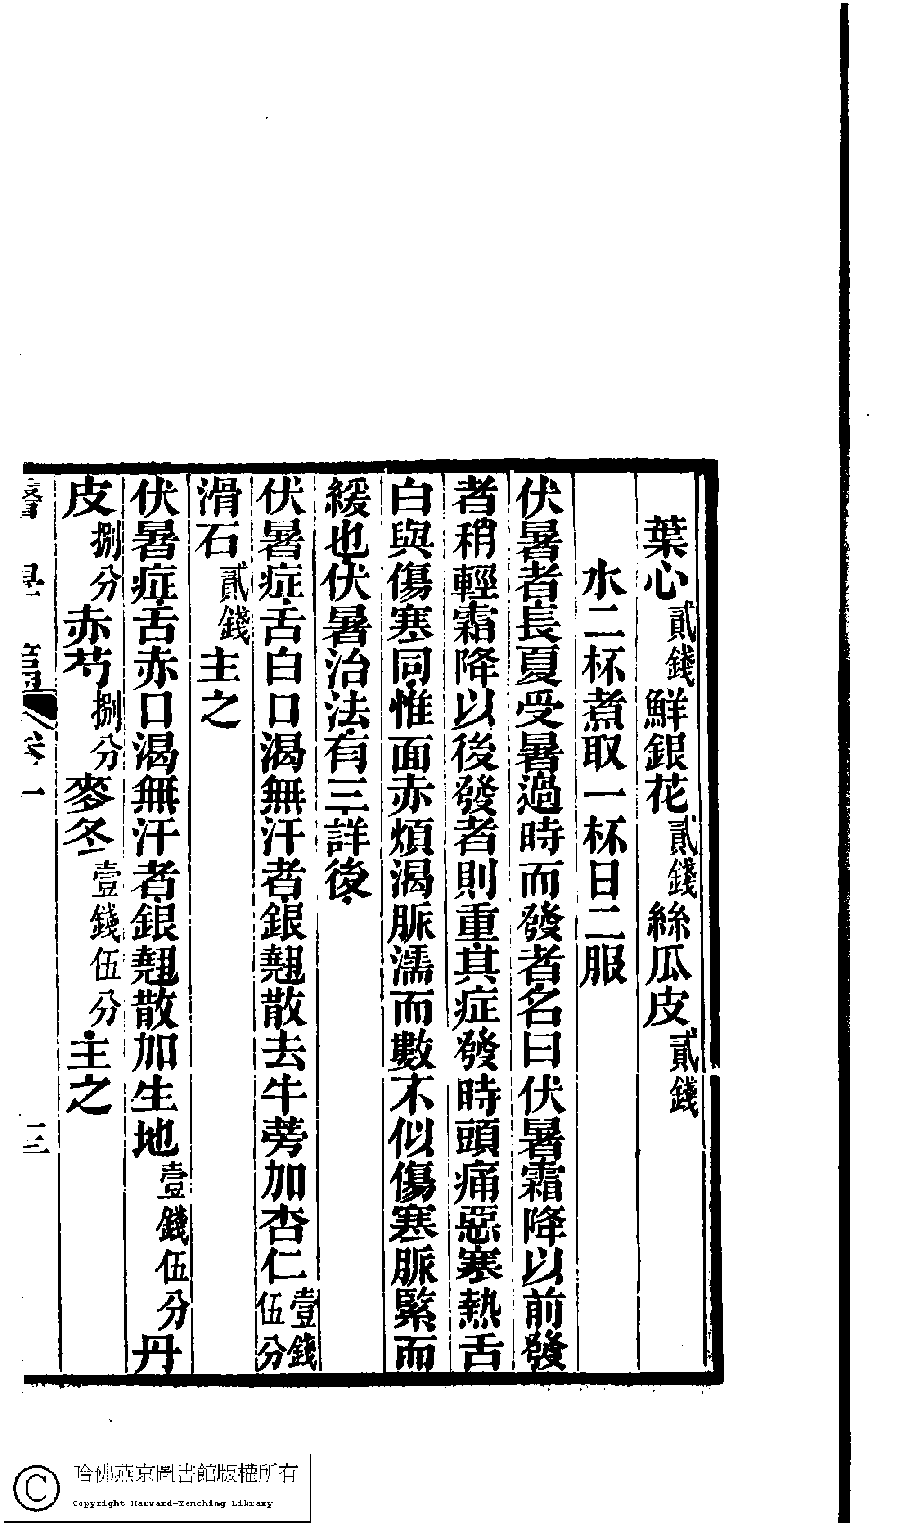 葉心貳錢鮮銀花貳錢絲瓜皮貳錢
水二杯煮取一杯日二服
伏暑者長夏受暑過時而發者名曰伏暑霜降以前發
者稍輕霜降以後發者則重其症發時頭痛惡寒熱舌
白與傷寒同惟面赤煩渴脈濡而數不似傷寒脈緊而
緩也伏暑治法有三詳後
伏暑症舌白口渴無汗者銀翹散去牛蒡加杏仁壹錢伍分
滑石貳錢主之
伏暑症舌赤口渴無汗者銀翹散加生地壹錢伍分丹
皮捌分赤芍捌分麥冬壹錢伍分主之
醫學篇 卷一 三
哈佛燕京圖書館版權所有
Copyright Harvard-Yenching Library